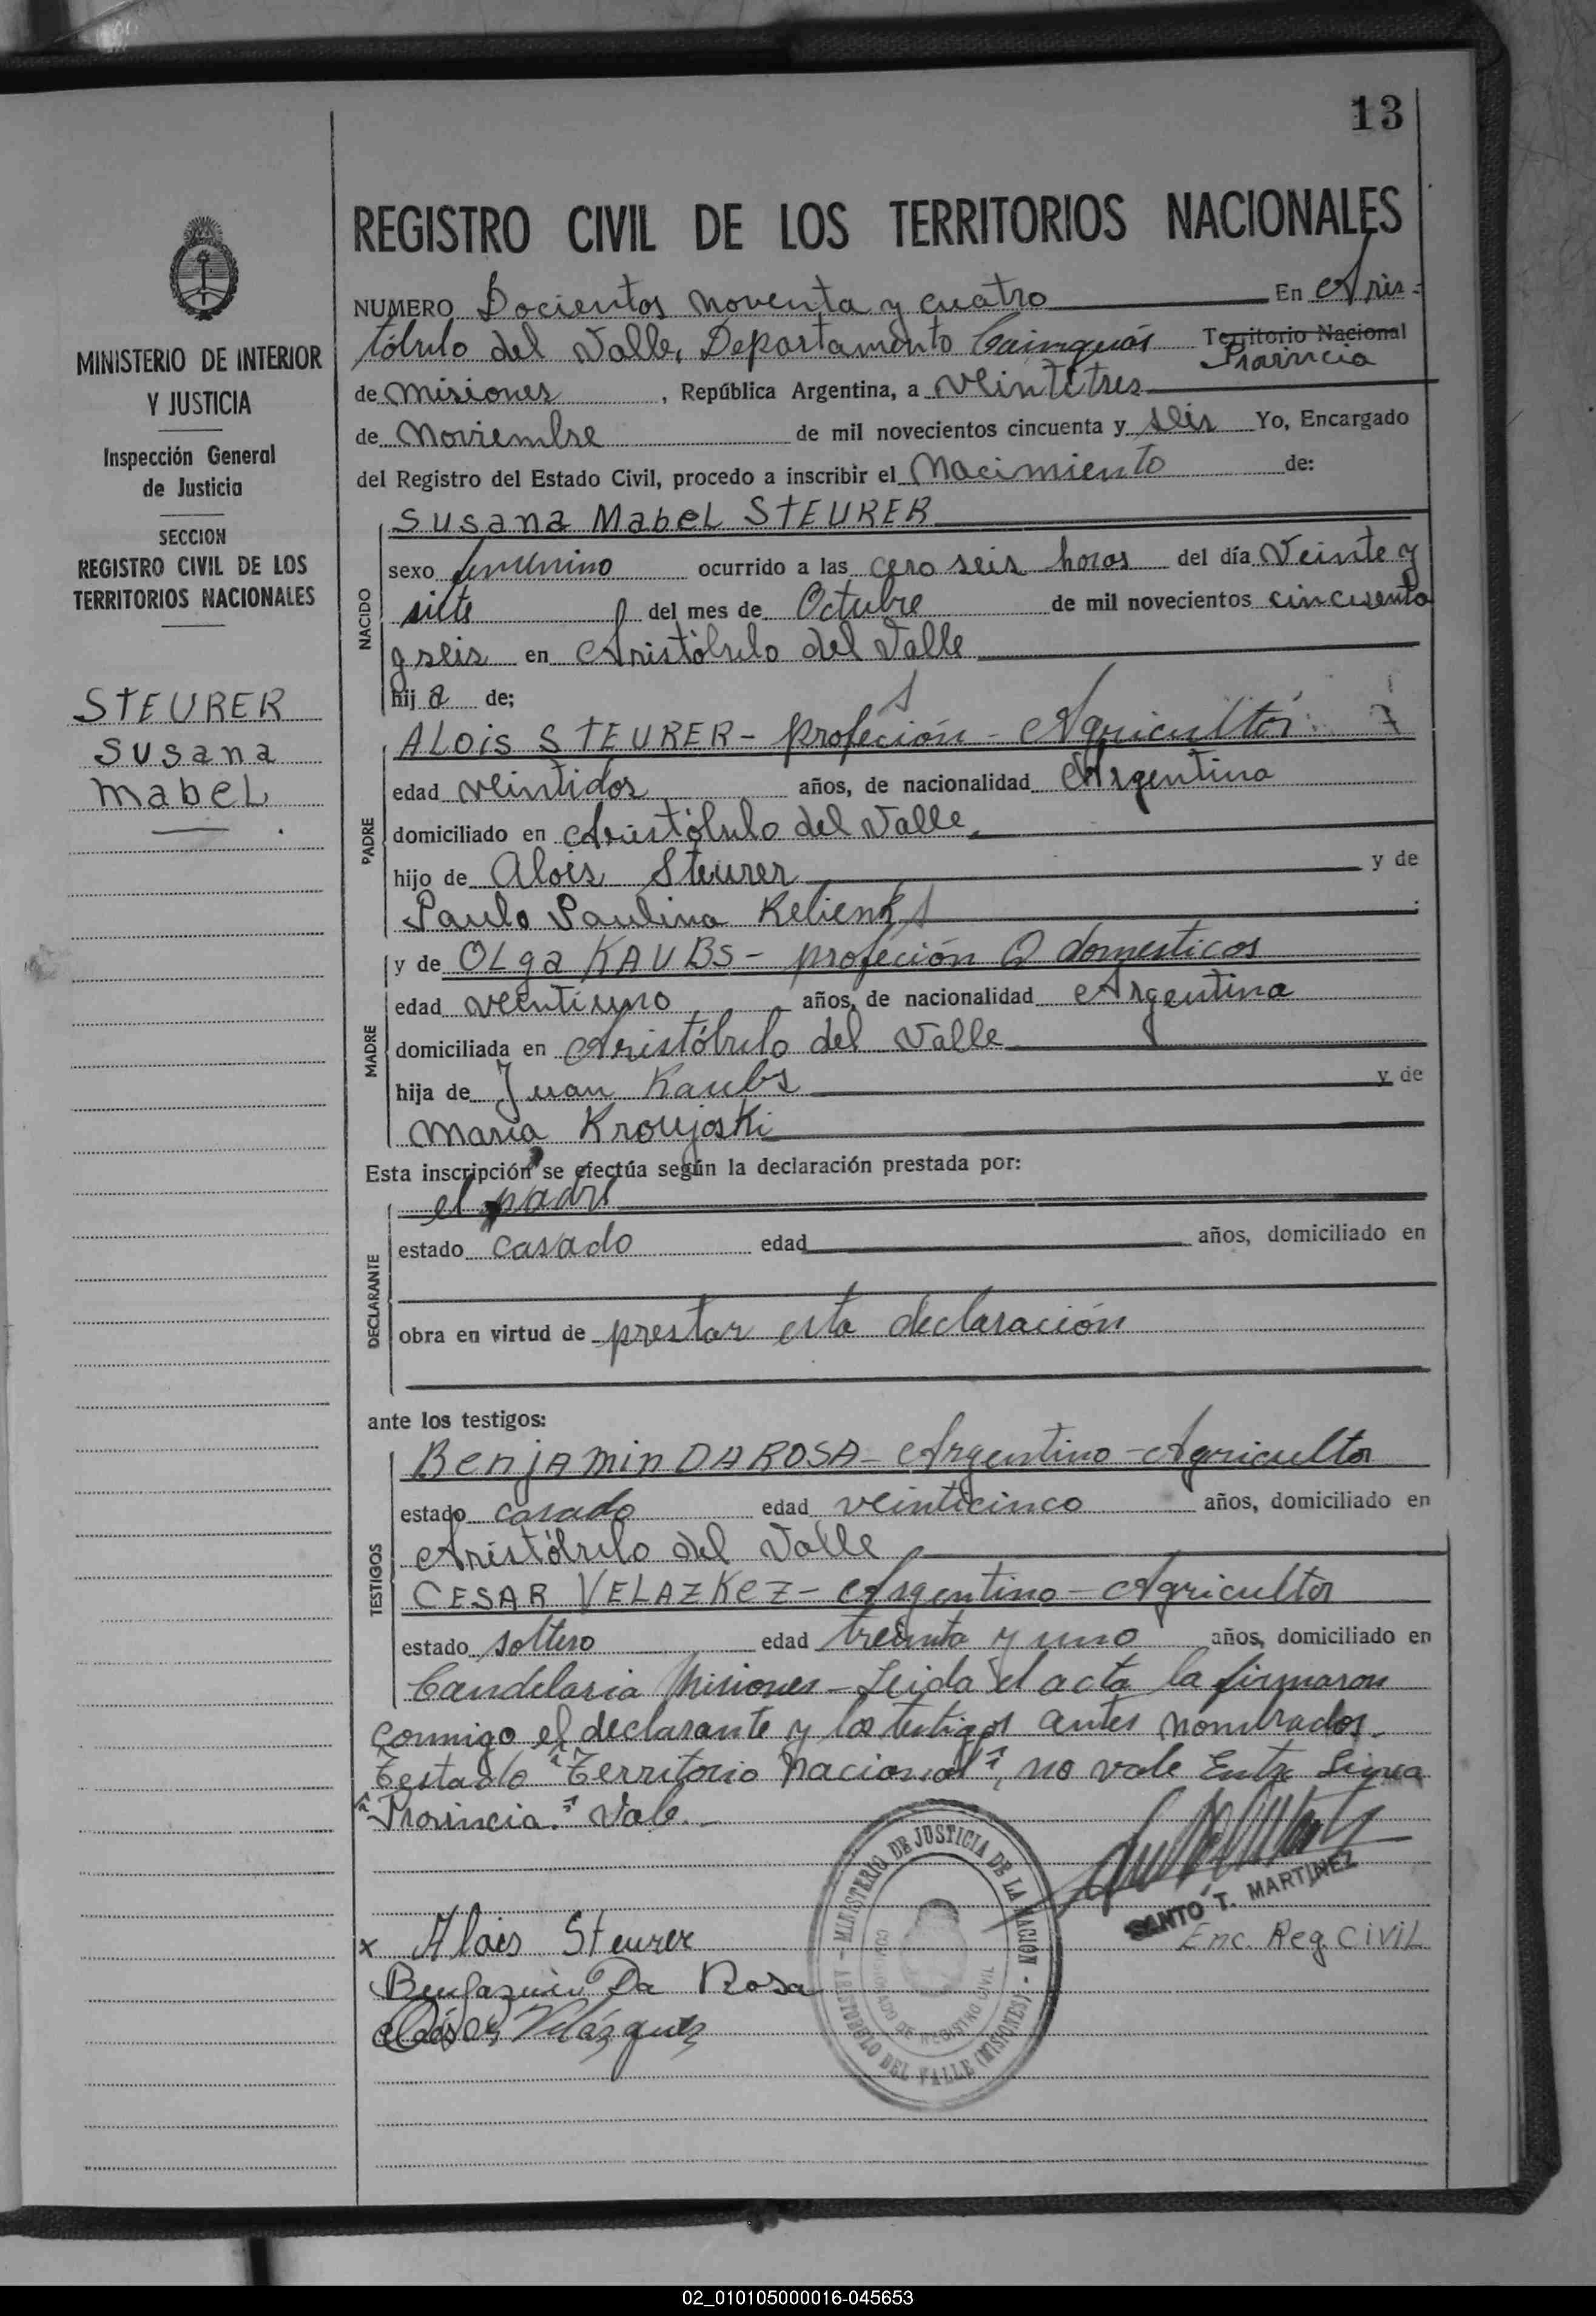 13
REGISTRO CIVIL DE LOS TERRITORIOS NACIONALES
MINISTERIO DE INTERIOR
Y JUSTICIA
Inspección General
de Justicia
SECCION
REGISTRO CIVIL DE LOS
TERRITORIOS NACIONALES
STEURER
Susana
Mabel
NUMERO Docientos noventa y cuatro En Aris-
tóbulo del Valle, Departamento Cainguás Territorio Nacional
Provincia
de Misiones, República Argentina, a veintitres
de Noviembre de mil novecientos cincuenta y seis Yo, Encargado
del Registro del Estado Civil, procedo a inscribir el Nacimiento de:
NACIDO
Susana Mabel STEURER
sexo femenino ocurrido a las cero seis horas del día Veinte y
siete del mes de Octubre de mil novecientos cincuenta
y seis en Aristóbulo del Valle
hij a de;
PADRE
ALois STEURER - profeción - Agricultór
edad veintidos años, de nacionalidad Argentina
domiciliado en Aristóbulo del Valle
hijo de Alois Steurer y de
Paulo Paulina
MADRE
y de OLga KAUBS - profeción Q domesticos
edad veintiuno años, de nacionalidad Argentina
domiciliada en Aristóbulo del Valle
hija de Juan Kaubs y de
Maria Kroujoski
Esta inscripción se efectúa según la declaración prestada por:
DECLARANTE
el padre
estado casado edad años, domiciliado en
obra en virtud de prestar esta declaración
ante los testigos:
TESTIGOS
Benjamin DA ROSA - Argentino - Agricultor
estado casado edad veinticinco años, domiciliado en
Aristóbulo del Valle
CESAR VELAZKEZ - Argentino - Agricultor
estado soltero edad treinta y uno años, domiciliado en
Candelaria Misiones - Leida el acta la firmaron
conmigo el declarante y los testigos antes nombrados.
Testado "Territorio Nacional", no vale Entre Linea
"Provincia." Vale.-
MINISTERIO DE JUSTICIA DE LA NACION - ARISTOBULO DEL VALLE (MISIONES) -
COMISIONADO DE REGISTRO CIVIL
SANTO T. MARTINEZ
Enc. Reg. CiviL
x Alois Steurer
Benjamin Da Rosa
César Velázquez
02_010105000016-045653